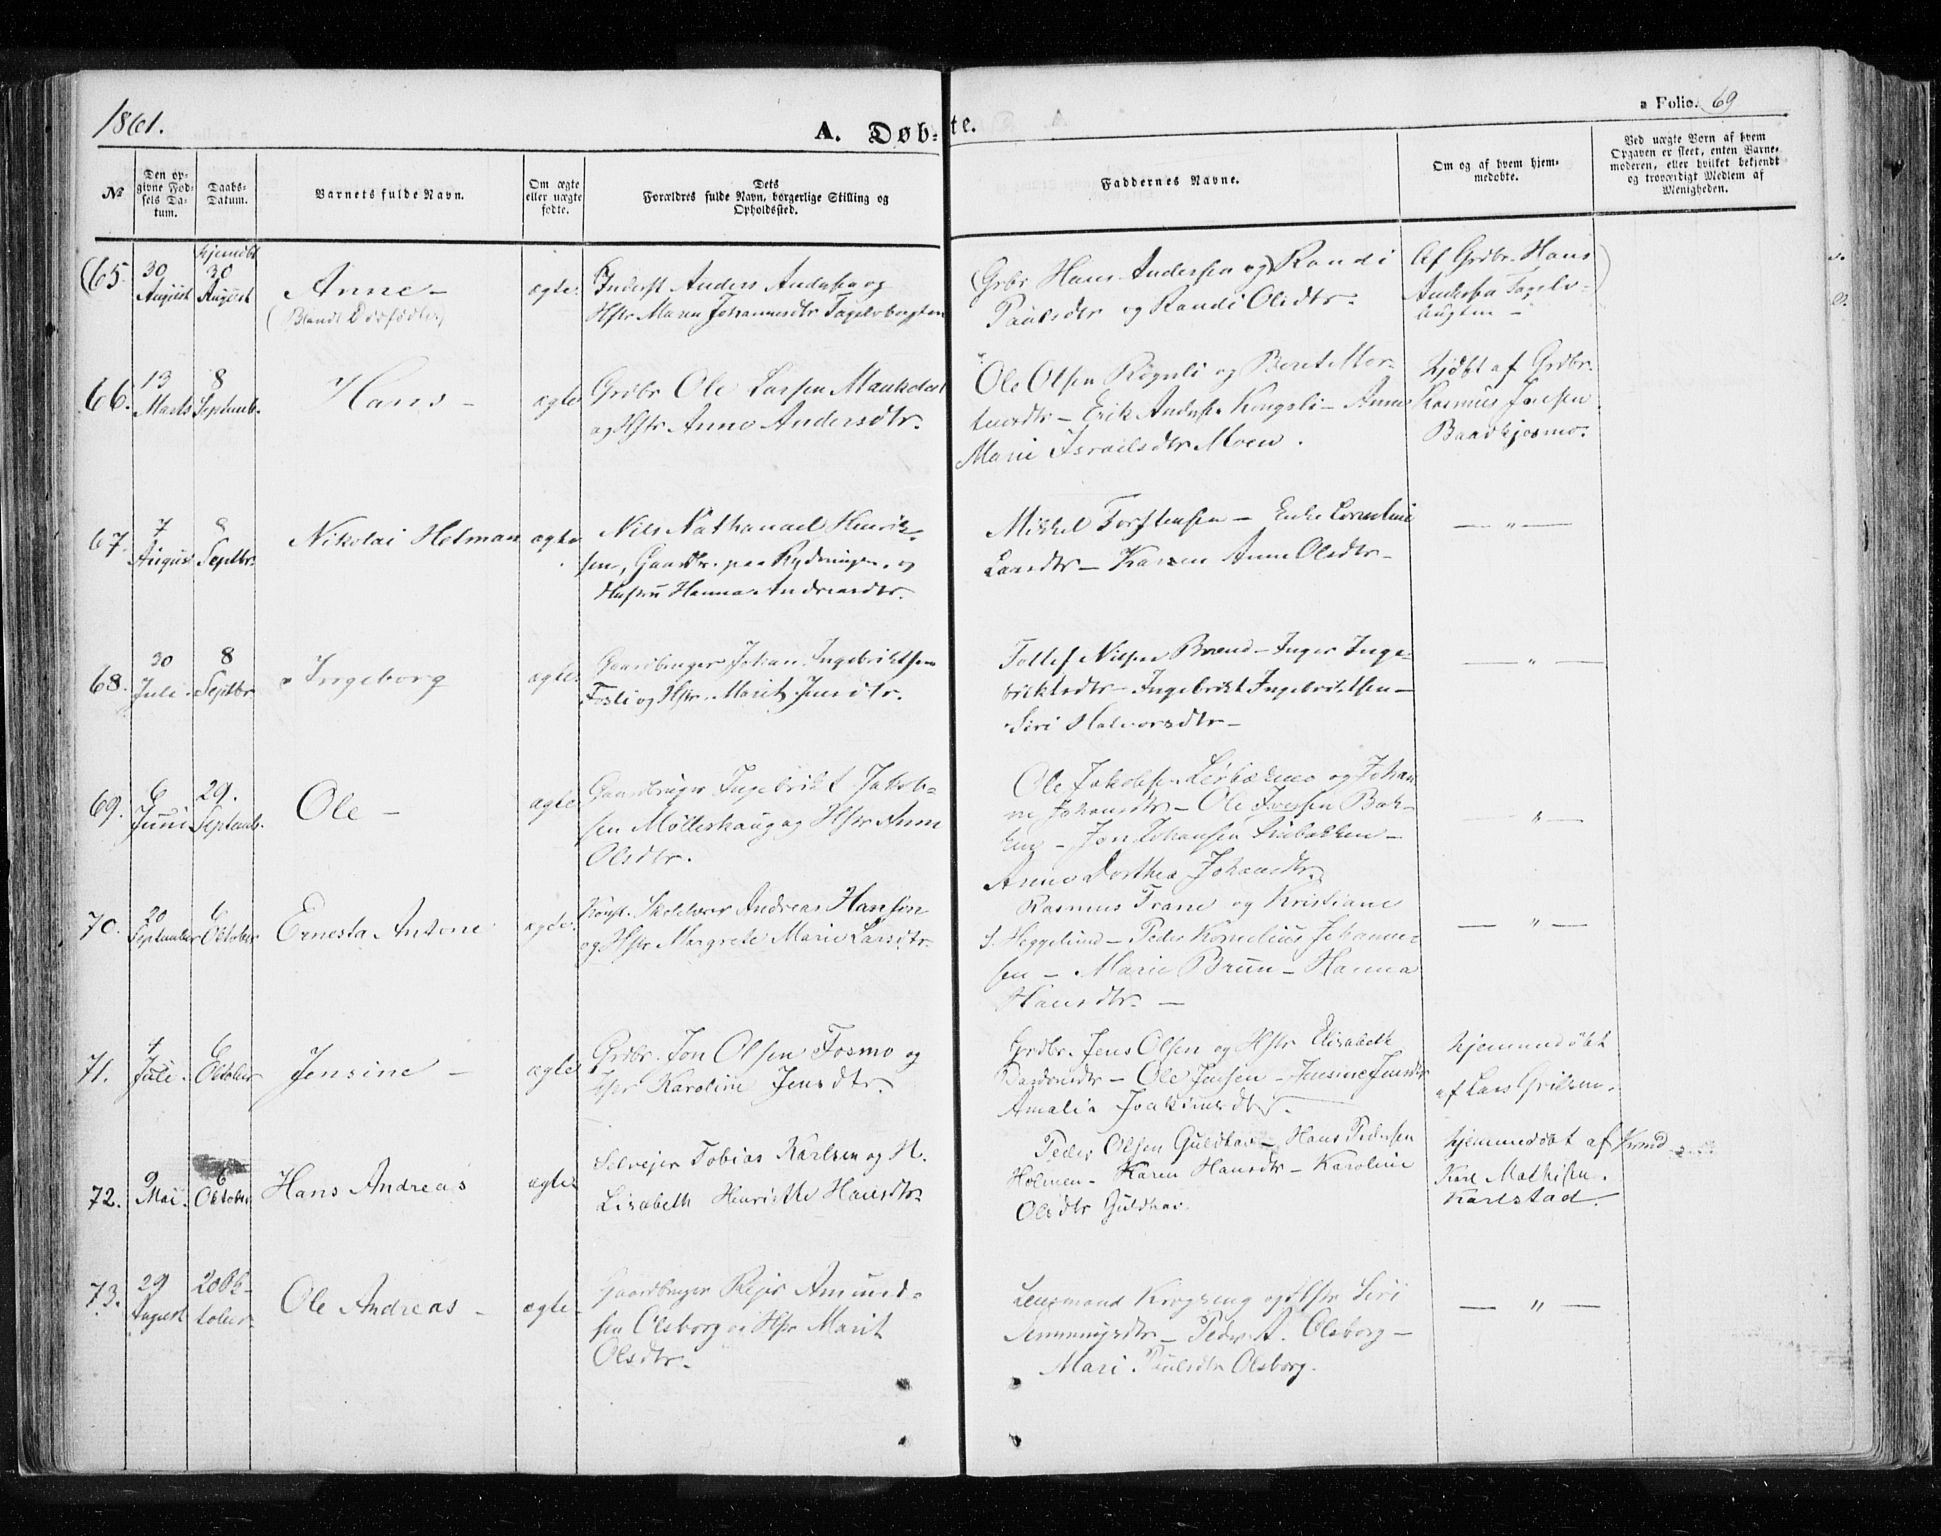 1861.
A. Døb-
te.
a Folio. 69
No
Den op-
givne Fød-
sels Da-
tum.
Daabs-
Datum.
Barnets fulde Navn.
Om ægte
eller uægte
fødte.
Dets
Forældres fulde Navn, borgerlige Stilling og
Opholdssted.
Faddernes Navne.
Om og af hvem hjem-
medøbte.
Ved uægte Børn af hvem
Opgaven er skeet, enten Barne-
moderen, eller hvilket bekjendt
og troværdigt Medlem af
Menigheden.
(65.
30
August
hjemdbt
30
August
Anne –
(Blandt Dødfødte)
ægte.
Inderst Anders Andersen og
Hstr Maria Johannesdtr
(Grbr Hans Andersen og) Randi
Paulsdtr og Randi Olsdtr.
Af Grdbr. Hans
Andersen
66.
13
Marts
8
Septemb.
Hans –
ægte
Grdbr Ole Larsen
og Hstr Anne Andersdtr.
Ole Olsen Rognli og Beret Mor-
tensdtr – Erik Anders. Kongsli – Anne
Marie Israelsdtr Moen.
hjdbt af Grdbr.
Rasmus Jensen
67.
7
August
8
Septbr.
Nikolai Helman
ægte
Nils Nathanael Henrik-
sen, Gaardbr. paa Rydningen, og
Hustru Hanna Andreasdtr.
Mikkel Torstensen – Enke
Larsdtr – Karen Anne Olsdtr –
— " —
68.
30
Juli.
8
Septbr
Ingeborg
ægte.
Gaardbruger Johan Ingebriktsen
Fosli og Hstr. Marit Jensdtr.
Tollef Nilsen Brend – Inger Inge-
briktsdtr – Ingebrikt Ingebriktsen –
Siri Halvorsdtr –
— " —
69.
6
Juni
29.
Septemb.
Ole –
ægte
Gaardbruger Ingebrikt Jakob-
sen Mølleshaug og Hstr Anne
Olsdtr.
Ole Jakobsen og Johan-
ne Johansdtr – Ole Iversen Bak-
ken – Jon Johansen –
Anne Dorthea Johansdtr.
— " —
70.
20
September
6
Oktober
Ernesta Antone
ægte.
Konst. Skolelærer Andreas Hansen
og Hstr Margrete Marie Larsdtr.
Rasmus Trane og Kristiane
S. Heggelund – Peder Kornelius Johanne-
sen – Marie Brun – Hanna
Hansdtr. –
— " —
71.
4
Juli.
6
Oktober
Jensine –
ægte
Grdbr. Jon Olsen Fosmo og
Hstr Karoline Jensdtr.
Grdbr. Jens Olsen og Hstr Elisabeth
– Ole Jensen – Jensine Jensdtr
Amalia Joakimsdtr.
hjemmedøbt
af Lars
72.
9
Mai.
6
Oktober
Hans Andreas
ægte
Selvejer Tobias Karlsen og H.
Lisabeth Henriette Hansdtr.
Peder Olsen Guldhav – Hans Pedersen
Holmen – Karen Hansdtr – Karoline
Olsdtr Guldhav.
hjemmedøbt af
Karl Mathisen
Karlstad.
73.
29
August
20 Ok-
tober
Ole Andreas –
ægte –
Gaardbruger Rejer Amund-
sen Olsborg og Hstr Marit
Olsdtr.
Lensmand Krogseng og Hstr Siri
Semmingsdtr – Peder A. Olsborg –
Mari Paulsdtr Olsborg.
— " —